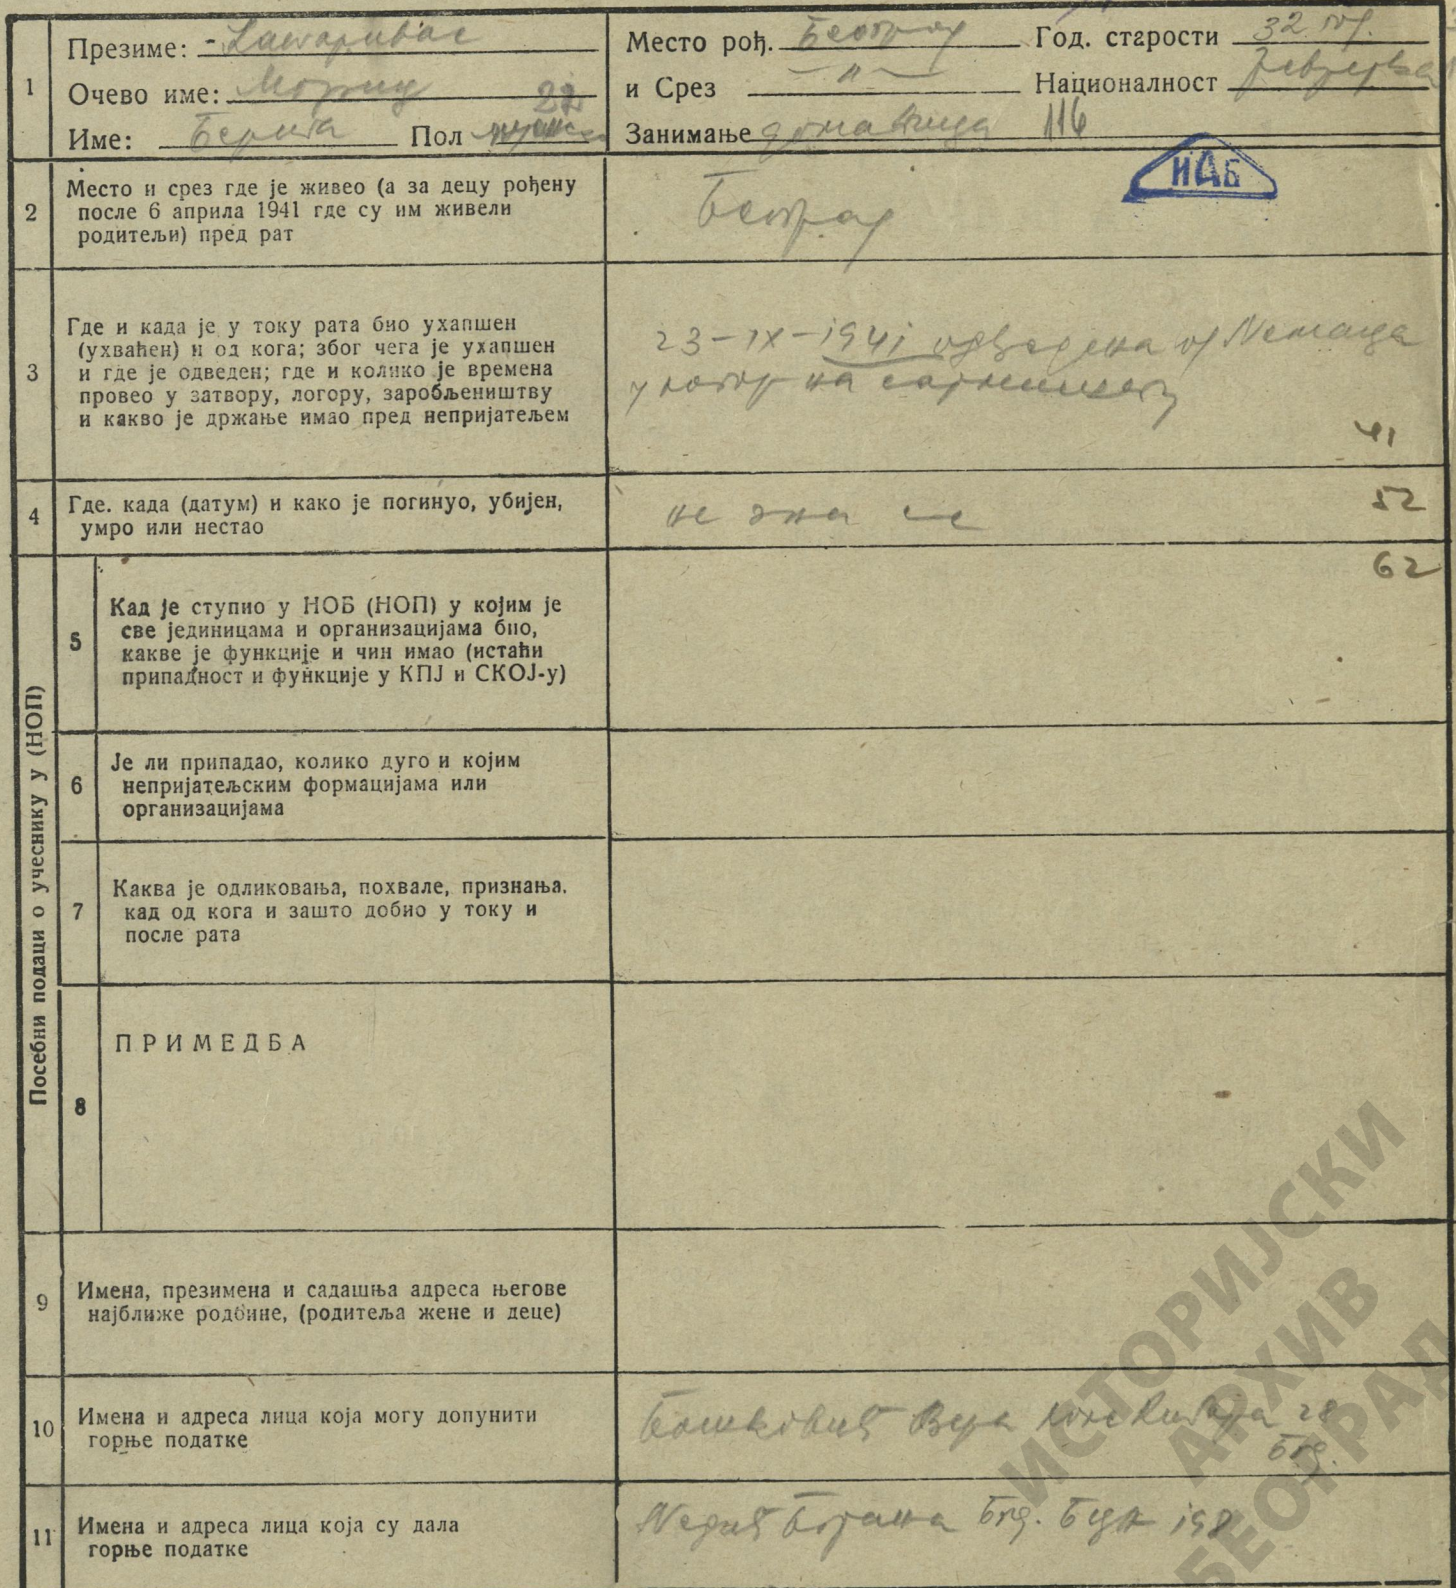 1
Презиме:
Очево име: Мориц
Име: Берта Пол женски 22
Место рођ. Београд Год. старости 32 год.
и Срез — „ — Националност Јеврејка
Занимање домаћица 116
ИАБ
2
Место и срез где је живео (а за децу рођену
после 6 априла 1941 где су им живели
родитељи) пред рат
Београд
3
Где и када је у току рата био ухапшен
(ухваћен) и од кога; због чега је ухапшен
и где је одведен; где и колико је времена
провео у затвору, логору, заробљеништву
и какво је држање имао пред непријатељем
23-IX-1941 одведена од Немаца
у логор на сајмишту
41
4
Где. када (датум) и како је погинуо, убијен,
умро или нестао
не зна се
52
Посебни подаци о учеснику у (НОП)
5
Кад је ступио у НОБ (НОП) у којим је
све јединицама и организацијама био,
какве је функције и чин имао (истаћи
припадност и функције у КПЈ и СКОЈ-у)
62
6
Је ли припадао, колико дуго и којим
непријатељским формацијама или
организацијама
7
Каква је одликовања, похвале, признања.
кад од кога и зашто добио у току и
после рата
8
ПРИМЕДБА
9
Имена, презимена и садашња адреса његове
најближе родбине, (родитеља жене и деце)
10
Имена и адреса лица која могу допунити
горње податке
Бошковић Вера 28
Бгд.
11
Имена и адреса лица која су дала
горње податке
Недић Бојана Бгд. 198
ИСТОРИЈСКИ
АРХИВ
БЕОГРАД